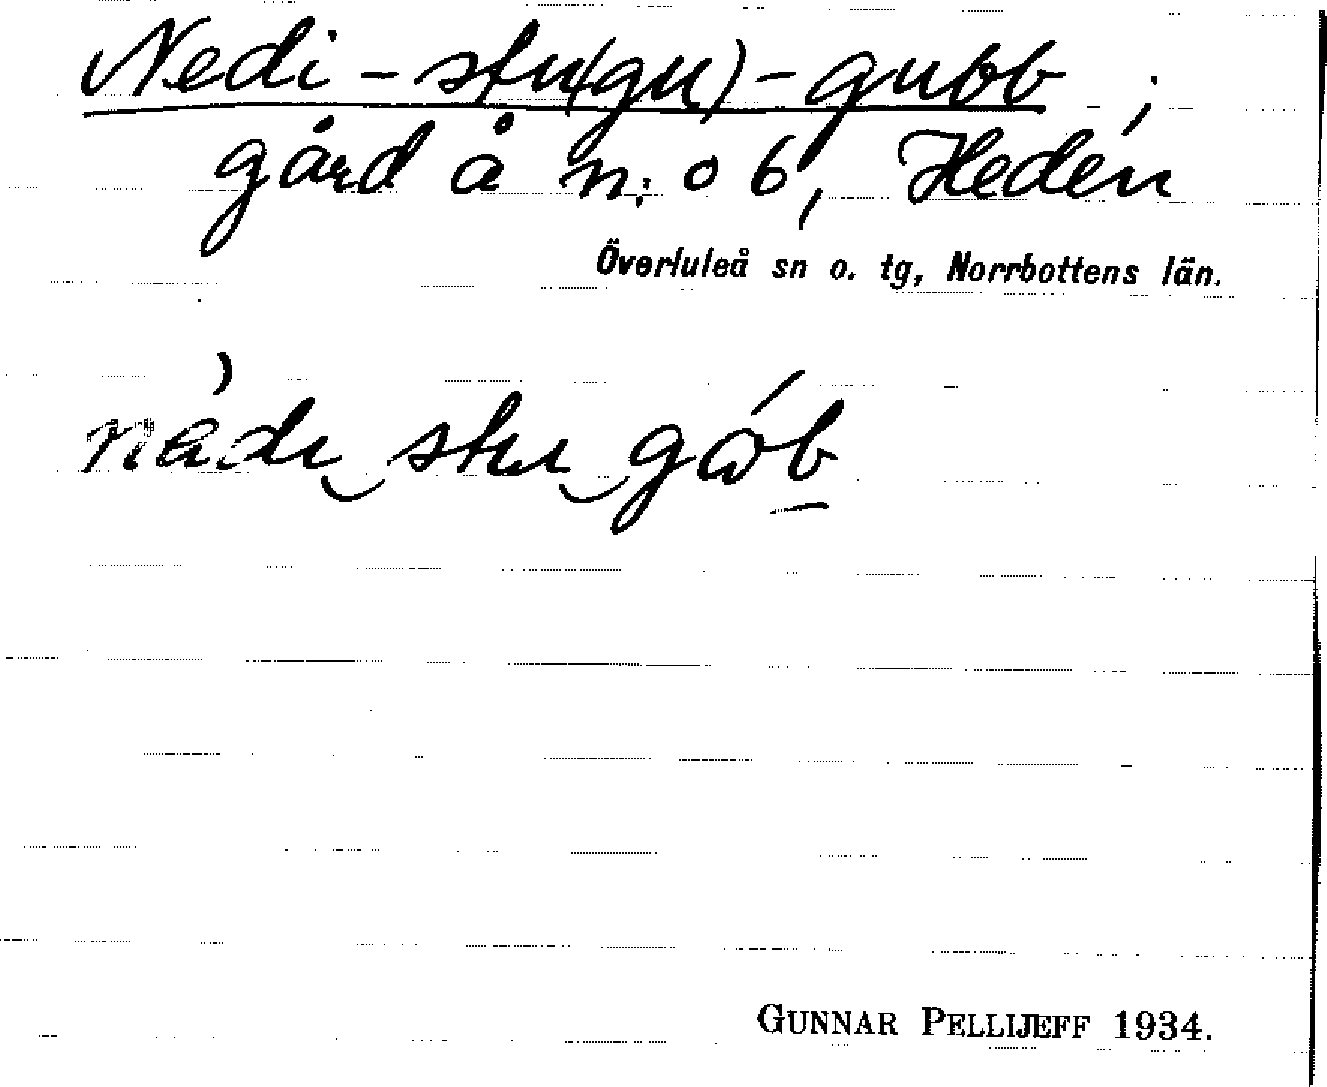 Nedi-stu(gu)-gubb,
gård å n:o 6, Heden
Överluleå sn o. tg, Norrbottens län.
nàdı‿stu‿gób
GUNNAR PELLIJEFF 1934.